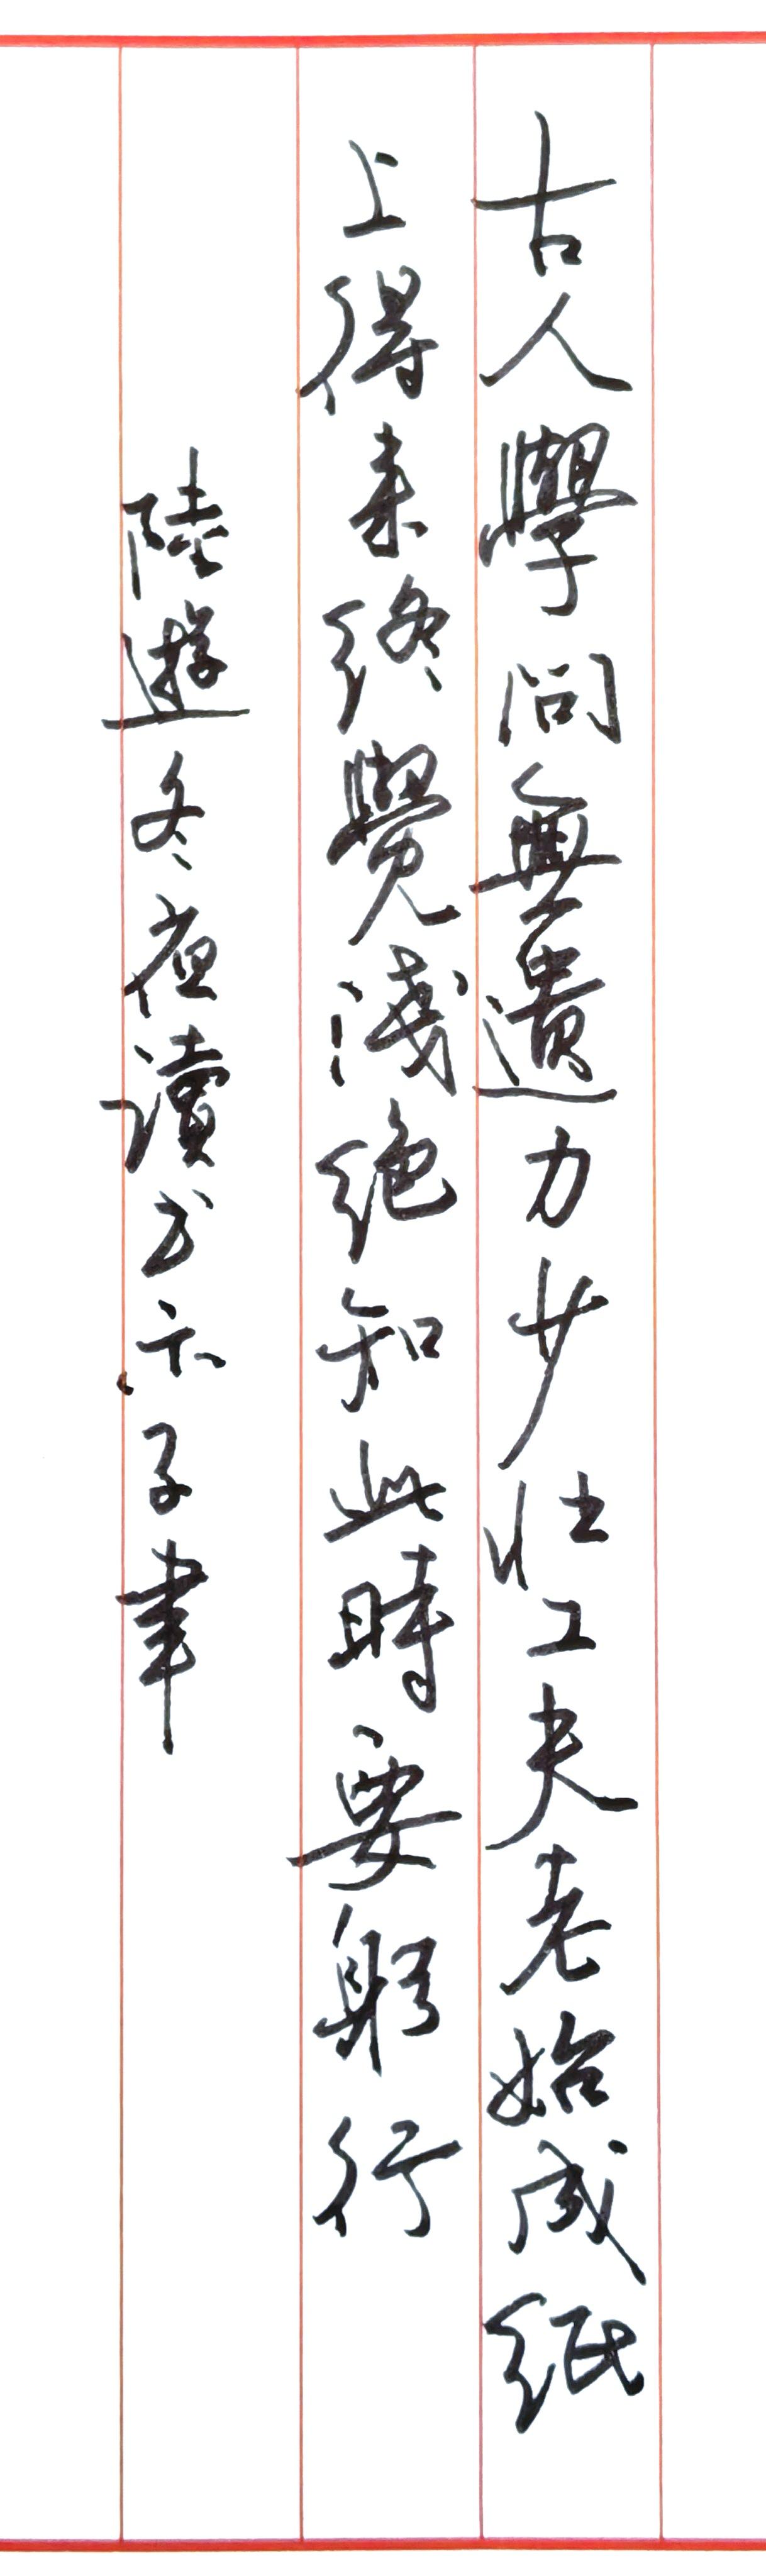 古人學問無遺力少壮工夫老始成紙
上得来終覺淺絕知此時要躬行
陸遊冬夜讀书示子聿